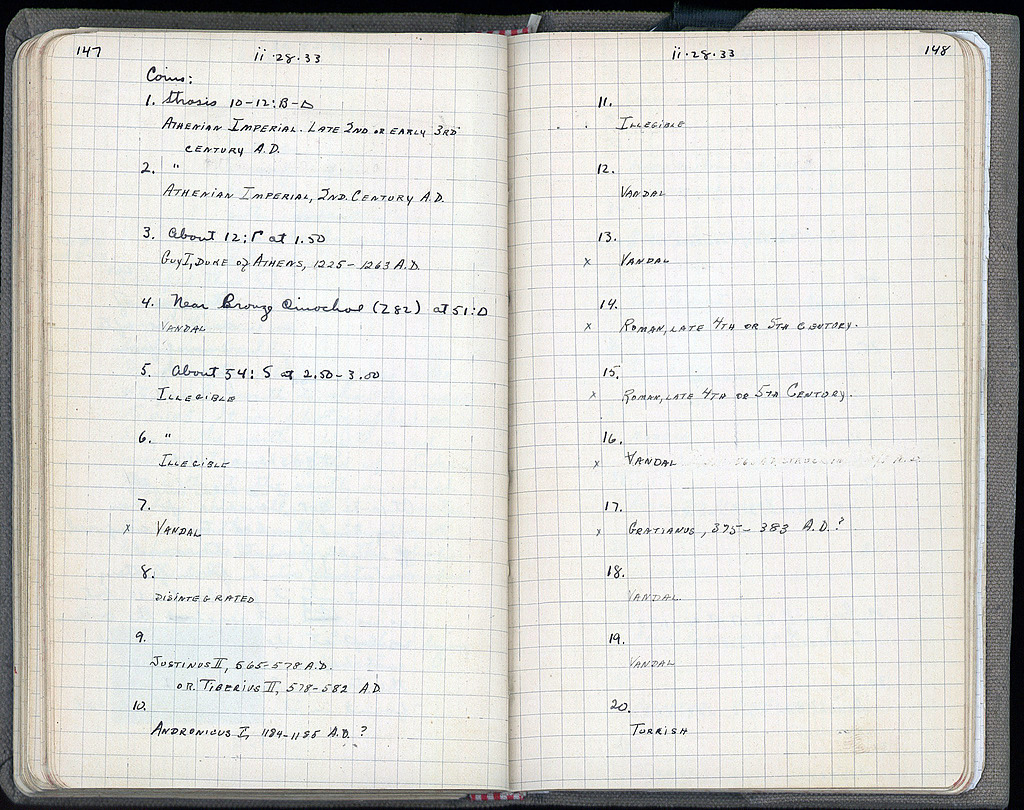 147
ii·28·33
Coins:
1. Stosis 10-12:B-Δ
ATHENIAN IMPERIAL. LATE 2ND OR EARLY 3RD
CENTURY A.D.
2. "
ATHENIAN IMPERIAL, 2ND. CENTURY A.D.
3. About 12:Γ at 1.50
GUY I, DUKE of ATHENS, 1225-1263 A.D.
4. Near Bronze Oinochoe (Z 82) at 51:D
VANDAL
5. About 54: S at 2.50-3.00
ILLEGIBLE
6. "
ILLEGIBLE
7.
x VANDAL
8.
DISINTEGRATED
9.
JUSTINUS II, 565-578 A.D.
OR TIBERIUS II, 578-582 AD
10.
ANDRONICUS I, 1184-1185 A.D. ?
ii·28·33
148
11.
ILLEGIBLE
12.
VANDAL
13.
x VANDAL
14.
x ROMAN, LATE 4TH OR 5TH CENTURY.
15.
x ROMAN, LATE 4TH OR 5TH CENTURY.
16.
x VANDAL
17.
x GRATIANUS, 375-383 A.D. ?
18.
VANDAL
19.
VANDAL
20.
TURKISH